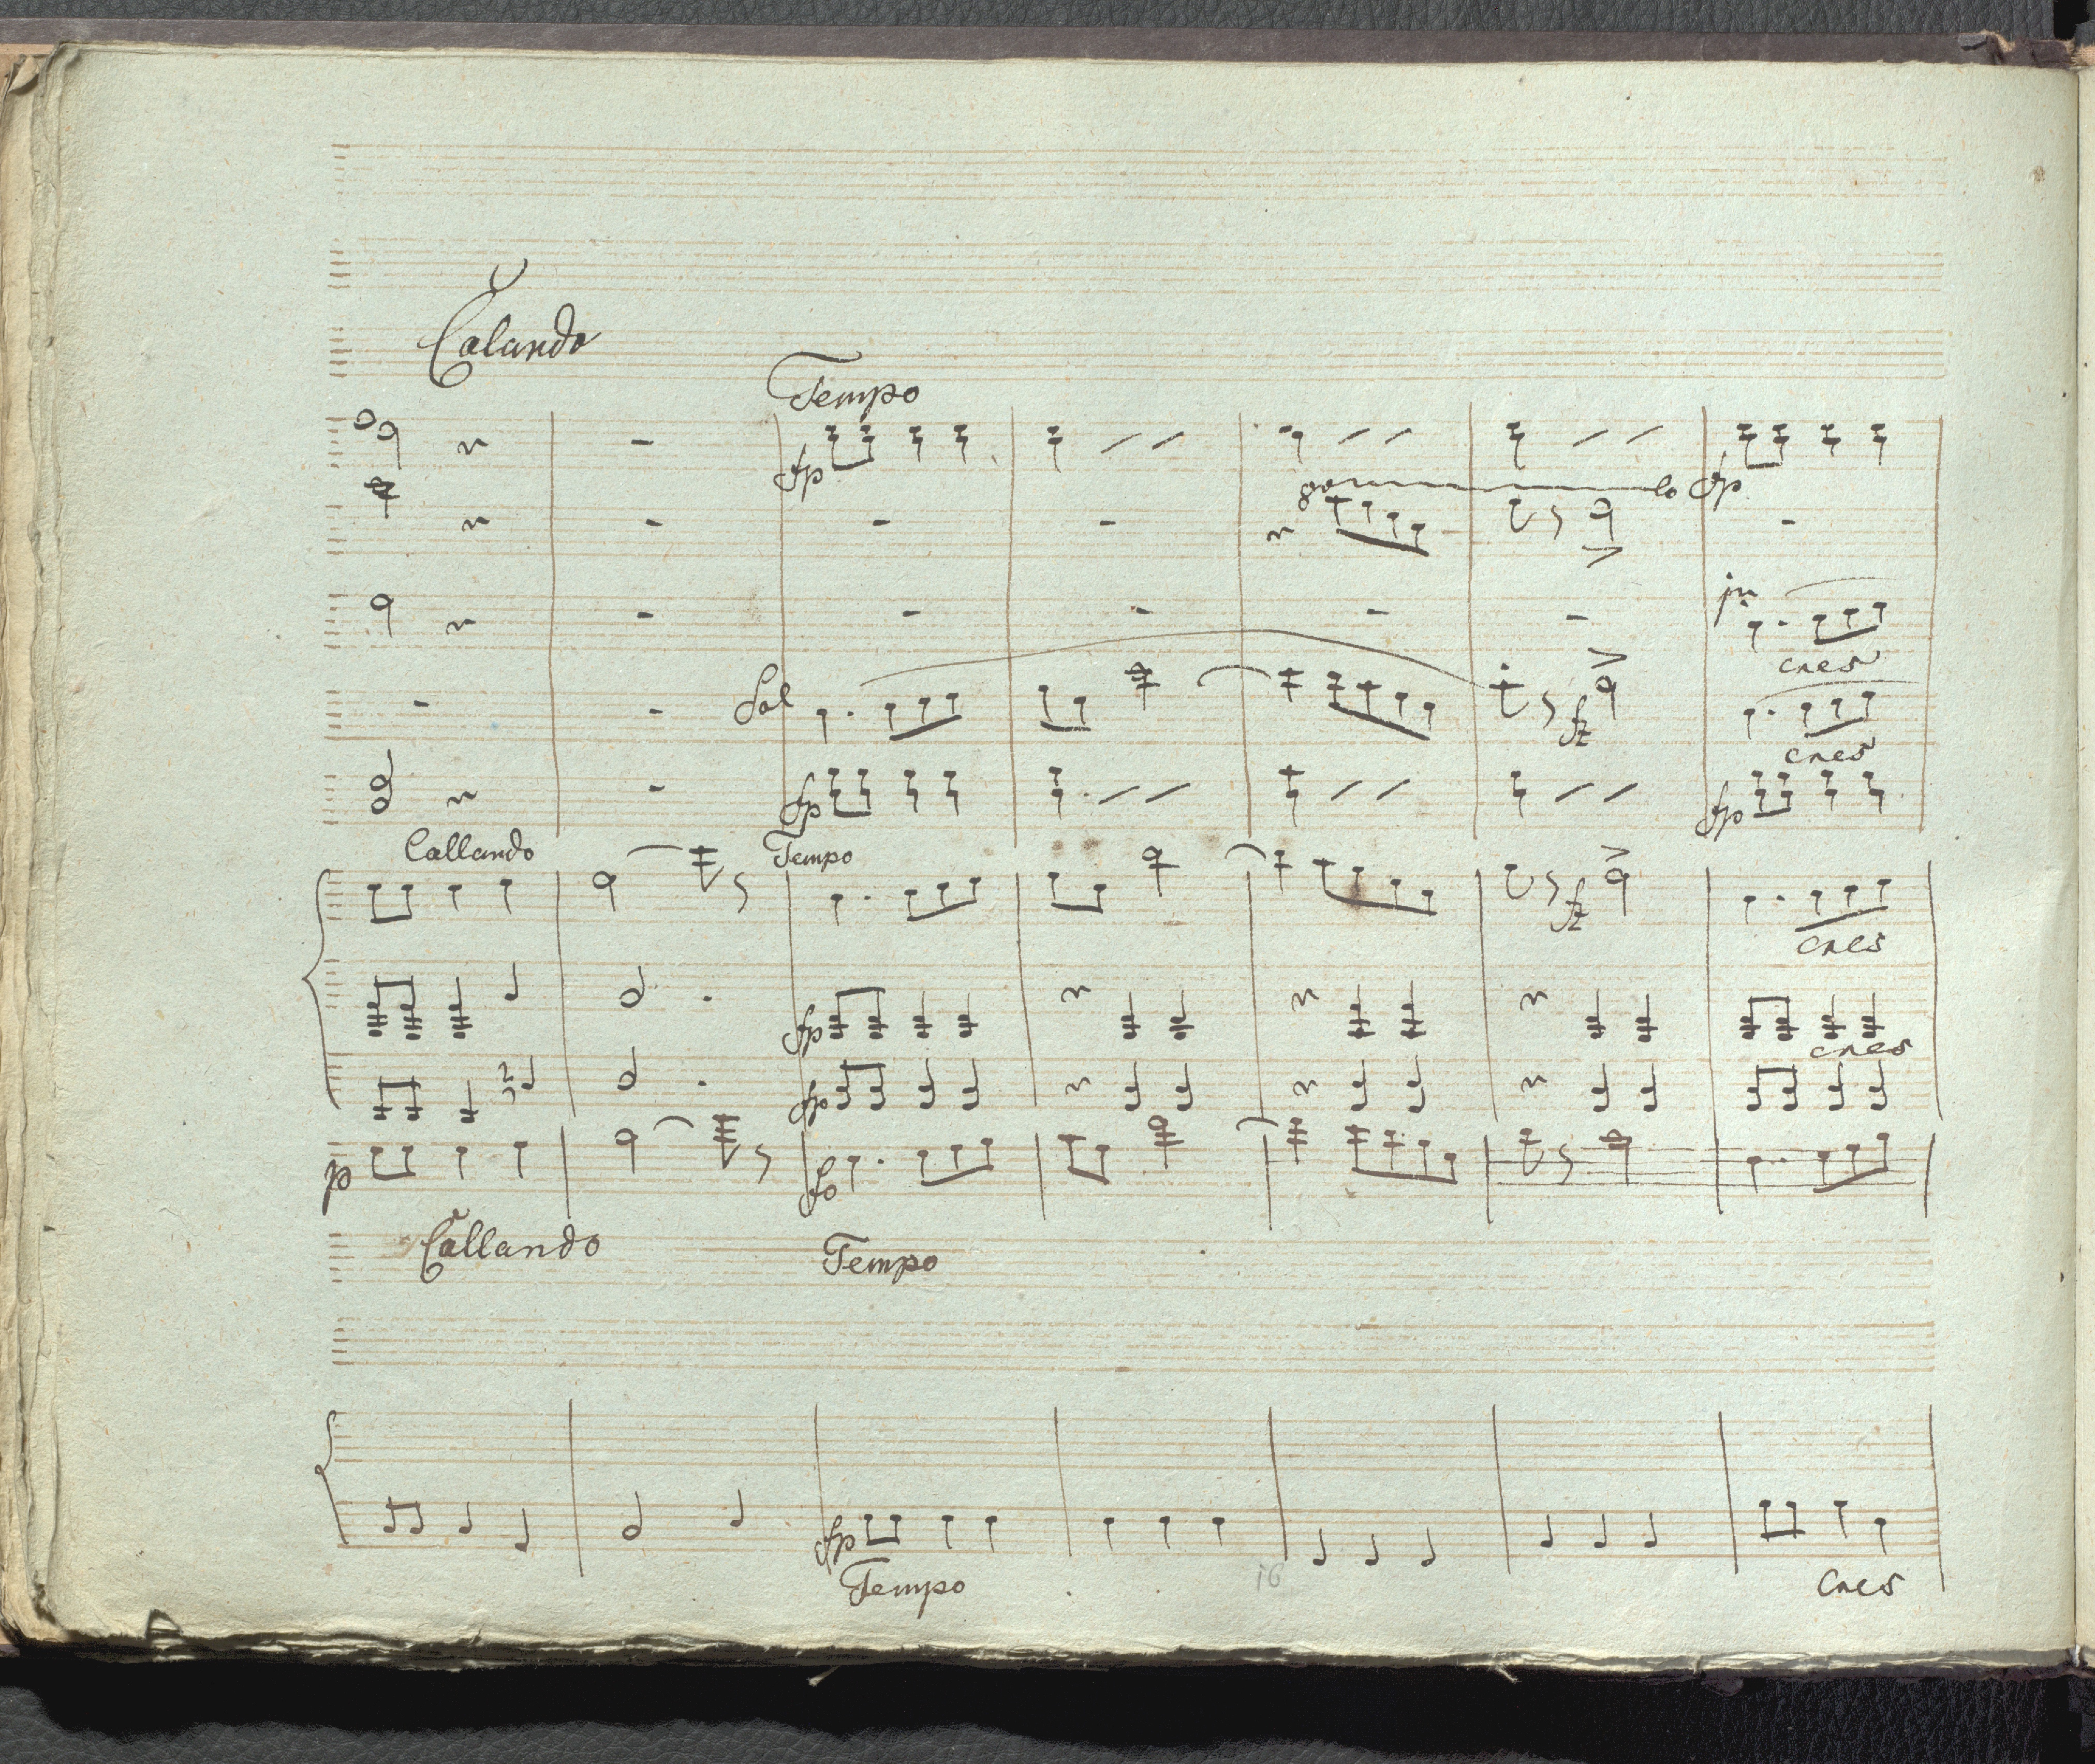 Calando
Tempo
fp
8va loco fp
pmo
cres
Sol
fz
cres
fp fp
Callando Tempo
fz
cres
fp
cres
fp
p fo
Callando Tempo
fp
Tempo 16 Cres